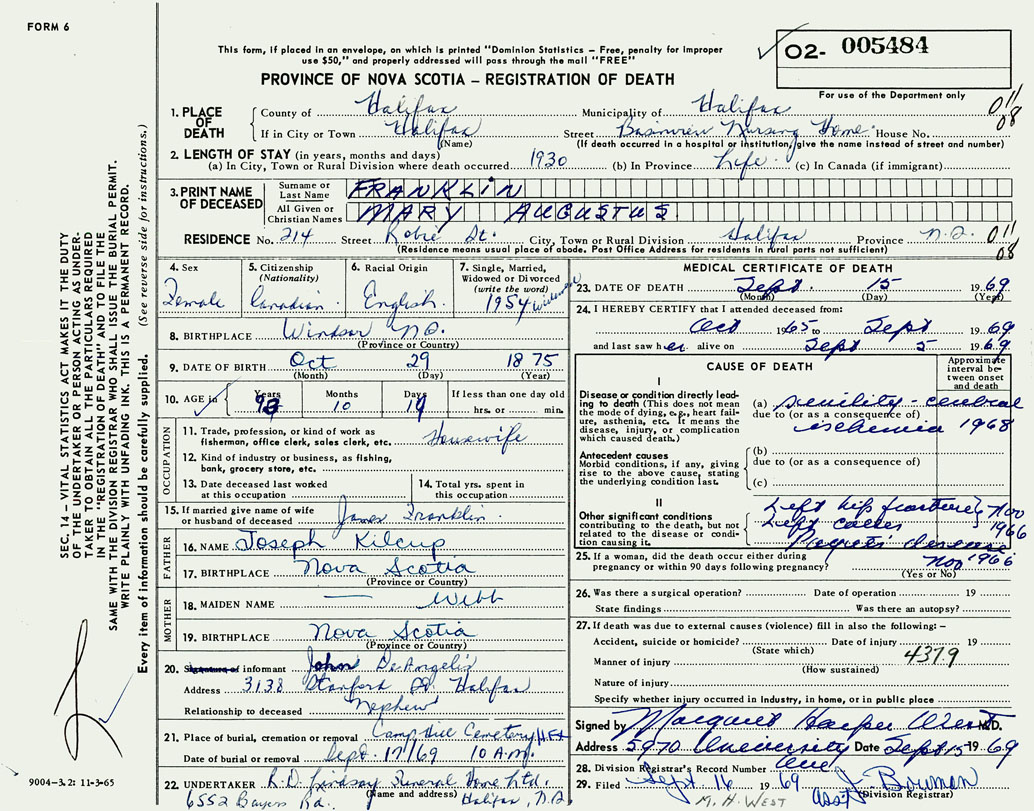 FORM 6
This form, if placed in an envelope, on which is printed "Dominion Statistics – Free, penalty for improper
use $50," and properly addressed will pass through the mail "FREE"
PROVINCE OF NOVA SCOTIA – REGISTRATION OF DEATH
O2- 005484
For use of the Department only
011
08
1. PLACE OF DEATH
County of Halifax Municipality of Halifax
If in City or Town Halifax Street Nursing Home House No.
(Name) (If death occurred in a hospital or institution, give the name instead of street and number)
2. LENGTH OF STAY (in years, months and days)
(a) In City, Town or Rural Division where death occurred 1930 (b) In Province Life (c) In Canada (if immigrant)
3. PRINT NAME OF DECEASED
Surname or Last Name FRANKLIN
All Given or Christian Names MARY AUGUSTUS
RESIDENCE No. 214 Street Robie St. City, Town or Rural Division Halifax Province N.S.
011
08
(Residence means usual place of abode. Post Office Address for residents in rural parts not sufficient)
4. Sex Female
5. Citizenship (Nationality) Canadian
6. Racial Origin English
7. Single, Married, Widowed or Divorced (write the word) 1954 Widowed
8. BIRTHPLACE Windsor N.S.
(Province or Country)
9. DATE OF BIRTH Oct 29 1875
(Month) (Day) (Year)
10. AGE in Years 93 Months 10 Days 19 If less than one day old
hrs. or min.
OCCUPATION
11. Trade, profession, or kind of work as
fisherman, office clerk, sales clerk, etc. Housewife
12. Kind of industry or business, as fishing,
bank, grocery store, etc.
13. Date deceased last worked
at this occupation
14. Total yrs. spent in
this occupation
15. If married give name of wife
or husband of deceased James Franklin
FATHER
16. NAME Joseph Kilcup
17. BIRTHPLACE Nova Scotia
(Province or Country)
MOTHER
18. MAIDEN NAME — Webb
19. BIRTHPLACE Nova Scotia
(Province or Country)
20. Signature of informant John DeAngelis
Address 3138 Stanford St. Halifax
Relationship to deceased Nephew
21. Place of burial, cremation or removal Camp Hill Cemetery HFX
Date of burial or removal Sept. 17/69 10 A.M.
22. UNDERTAKER R.D. Lindsay Funeral Home Ltd.
(Name and address)
6552 Bayers Rd. Halifax, N.S.
MEDICAL CERTIFICATE OF DEATH
23. DATE OF DEATH Sept. 15 1969
(Month) (Day) (Year)
24. I HEREBY CERTIFY that I attended deceased from:
Oct 1965 to Sept 1969
and last saw her alive on Sept 5 1969
CAUSE OF DEATH
Approximate interval between onset and death
I
Disease or condition directly leading to death (This does not mean
the mode of dying, e.g., heart failure, asthenia, etc. It means the
disease, injury, or complication
which caused death.)
(a) senility - cerebral
due to (or as a consequence of)
ischemia 1968
Antecedent causes
Morbid conditions, if any, giving
rise to the above cause, stating
the underlying condition last.
(b)
due to (or as a consequence of)
(c)
II
Other significant conditions
contributing to the death, but not
related to the disease or condition causing it.
Left hip fracture } Nov
Left colles 1966
Paget's disease
Nov 1966
25. If a woman, did the death occur either during
pregnancy or within 90 days following pregnancy?
(Yes or No)
26. Was there a surgical operation? Date of operation 19
State findings Was there an autopsy?
27. If death was due to external causes (violence) fill in also the following: –
Accident, suicide or homicide? Date of injury 19
(State which)
Manner of injury 437.9
(How sustained)
Nature of injury
Specify whether injury occurred in industry, in home, or in public place
Signed by M.D.
Address 5970 University Ave Date Sept 15 1969
28. Division Registrar's Record Number
29. Filed Sept 16 1969 J. Bowmen
(Division Registrar)
M. H. WEST Asst
SEC. 14 – VITAL STATISTICS ACT MAKES IT THE DUTY
OF THE UNDERTAKER OR PERSON ACTING AS UNDERTAKER TO OBTAIN ALL THE PARTICULARS REQUIRED
IN THE "REGISTRATION OF DEATH" AND TO FILE THE
SAME WITH THE DIVISION REGISTRAR WHO SHALL ISSUE THE BURIAL PERMIT.
WRITE PLAINLY WITH UNFADING INK. THIS IS A PERMANENT RECORD.
Every item of information should be carefully supplied. (See reverse side for instructions.)
9004-3.2: 11-3-65